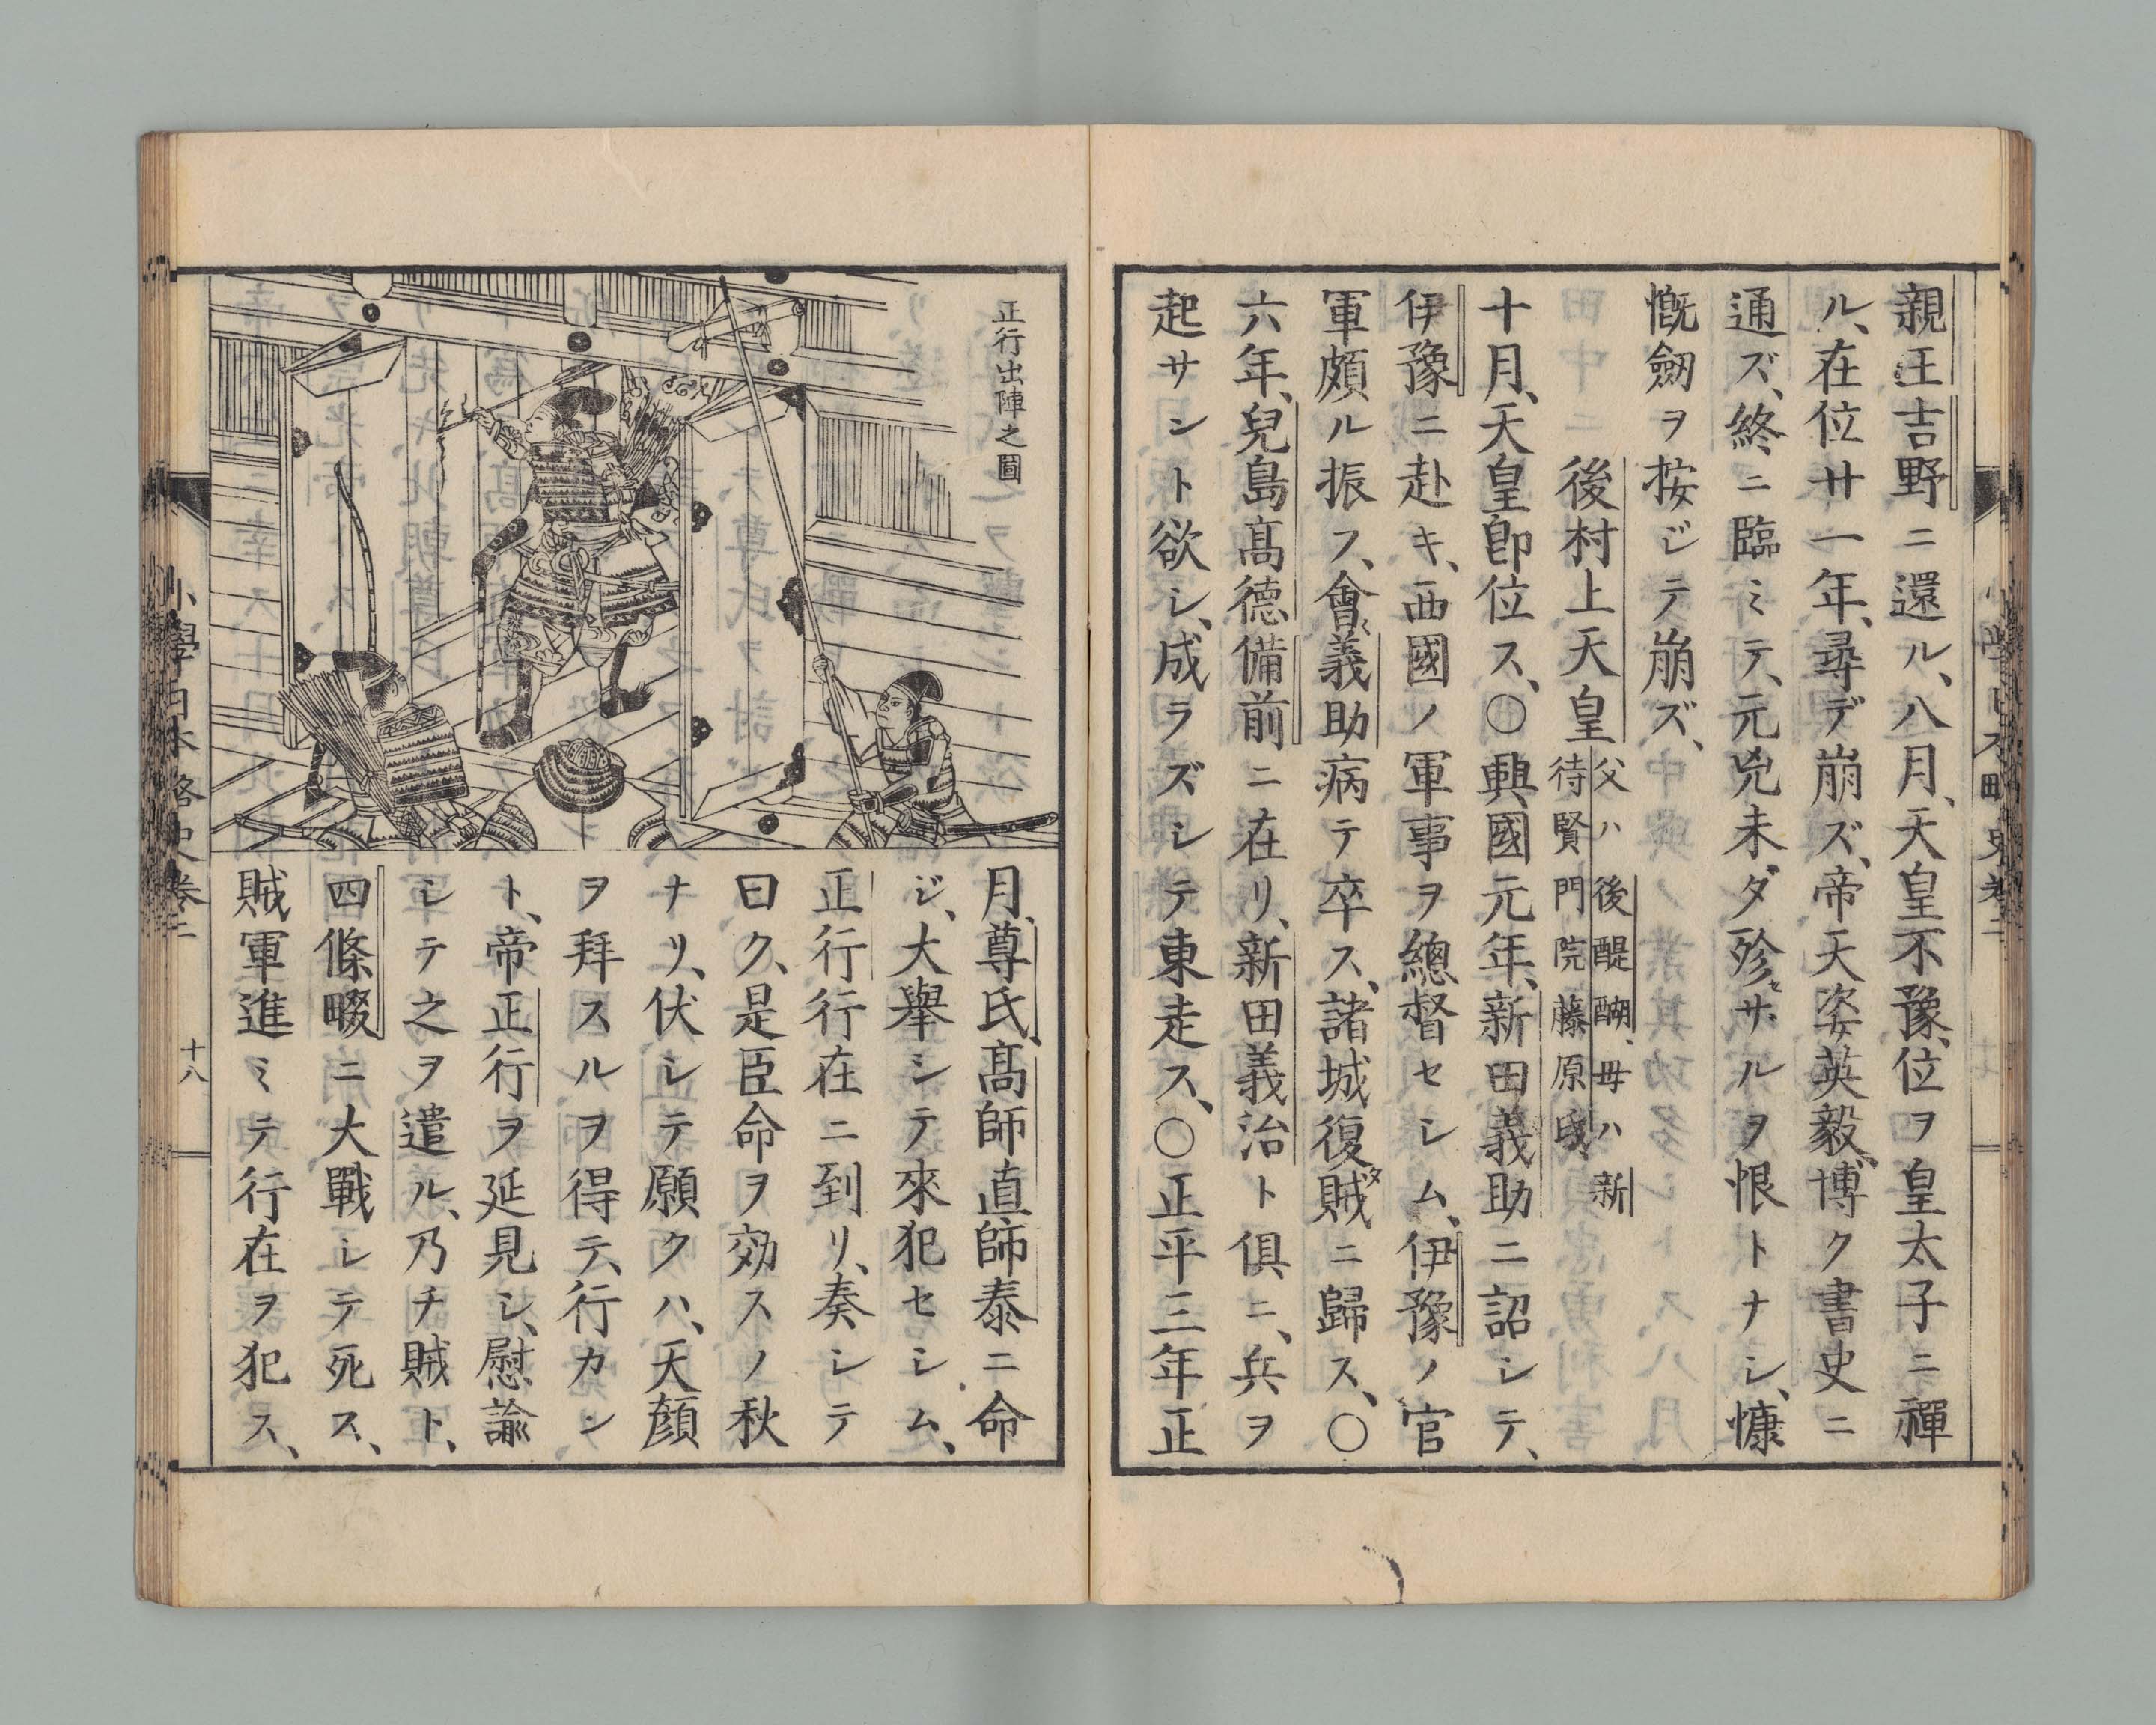 親王吉野ニ還ル、八月、天皇不豫、位ヲ皇太子ニ禪
ル、在位廿一年、尋デ崩ズ、帝天姿英毅、博ク書史ニ
通ズ、終ニ臨ミテ、元兇未ダ殄セザルヲ恨トナシ、慷
慨劒ヲ按ジテ崩ズ、
後村上天皇
父ハ後醍醐、母ハ新
待賢門院藤原氏
十月、天皇卽位ス、〇興國元年、新田義助ニ詔シテ、
伊豫ニ赴キ、西國ノ軍事ヲ總督セシム、伊豫ノ官
軍頗ル振フ、會〻義助病テ卒ス、諸城復タ賊ニ歸ス、〇
六年、兒島髙德備前ニ在リ、新田義治ト俱ニ、兵ヲ
起サント欲シ、成ラズシテ東走ス、〇正平三年正
正行出陣之圖
月、尊氏、髙師直師泰ニ命
ジ、大擧シテ來犯セシム、
正行行在ニ到リ、奏シテ
曰ク、是臣命ヲ効スノ秋
ナリ、伏シテ願クハ、天顔
ヲ拜スルヲ得テ、行カン
ト、帝正行ヲ延見シ、慰諭
シテ之ヲ遣ル、乃チ賊ト、
四條畷ニ大戰シテ死ス、
賊軍進ミテ行在ヲ犯ス、
小學日本略史卷二
十八